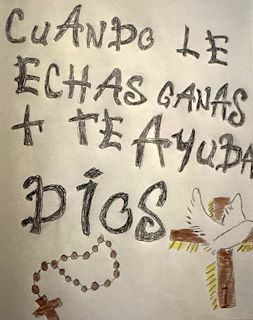 CUANDO LE
ECHAS GANAS
+ TE AYUDA
DiOS